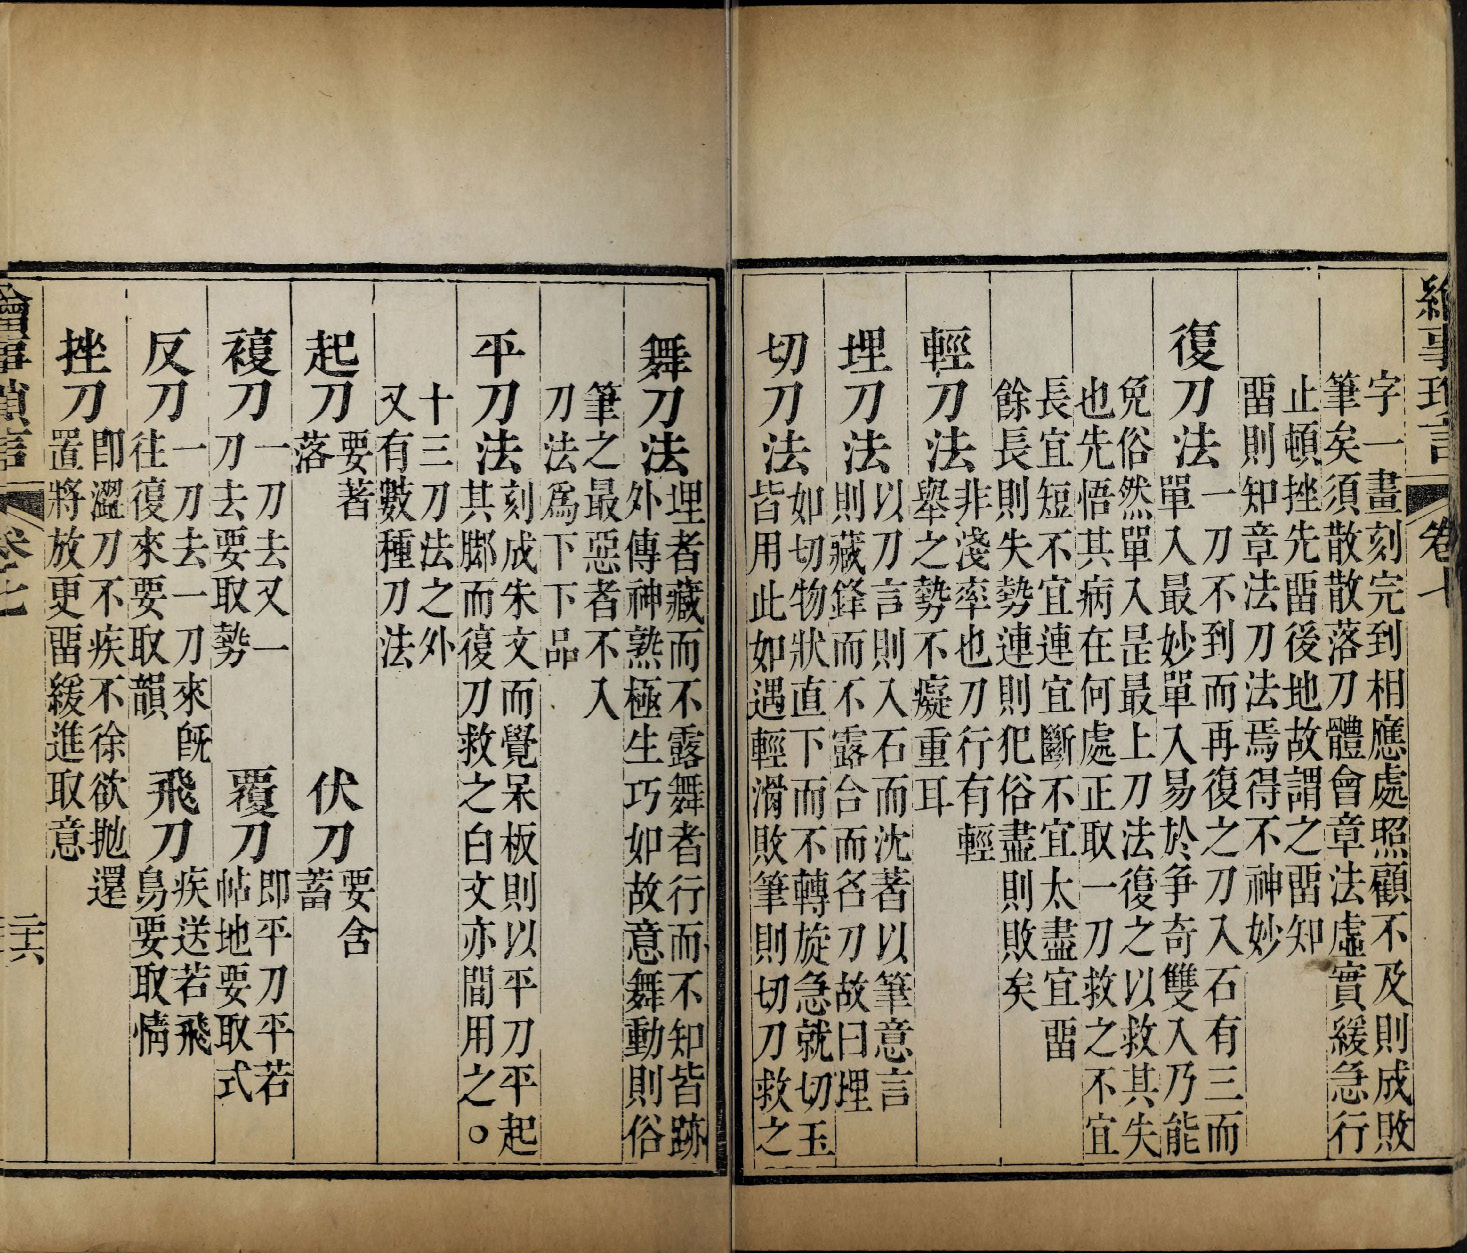 卷七
字一畫刻完到相應處照顧不及則成敗
筆矣須散散落刀體會章法虛實緩急行
止頓挫先畱後地故謂之畱知
畱則知章法刀法焉得不神妙
復刀法
一刀不到而再復之刀入石有三而
單入最妙單入易於爭奇雙入乃能
免俗然單入是最上刀法復之以救其失
也先悟其病在何處正取一刀救之不宜
長宜短不宜連宜斷不宜太盡宜畱
餘長則失勢連則犯俗盡則敗矣
輕刀法
非淺率也刀行有輕
舉之勢不癡重耳
埋刀法
以刀言則入石而沈著以筆意言
則藏鋒而不露合而名刀故曰埋
切刀法
如切物狀直下而不轉旋急就切玉
皆用此如遇輕滑敗筆則切刀救之
舞刀法
埋者藏而不露舞者行而不知皆跡
外傳神熟極生巧如故意舞動則俗
筆之最惡者不入
刀法爲下下品
平刀法
刻成朱文而覺呆板則以平刀平起
其腳而復刀救之白文亦間用之○
十三刀法之外
又有數種刀法
起刀
要著
落
伏刀
要含
蓄
複刀
一刀去又一
刀去要取勢
覆刀
即平刀平若
帖地要取式
反刀
一刀去一刀來旣
往復來要取韻
飛刀
疾送若飛
鳥要取情
挫刀
卽澀刀不疾不徐欲拋還
置將放更畱緩進取意
繪事瑣言
卷七
二十六